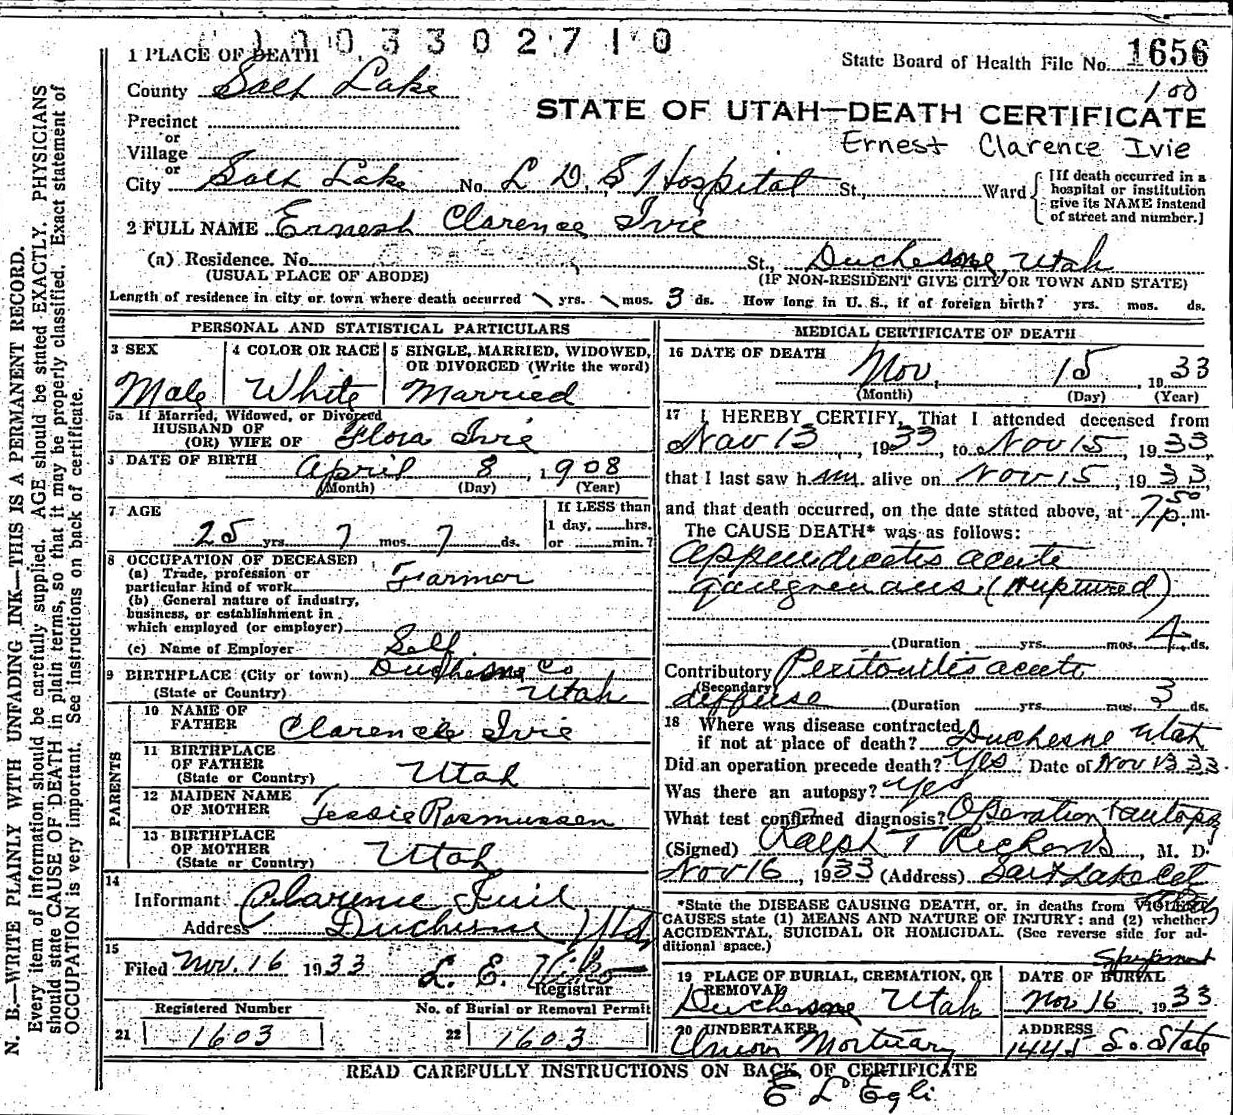 1003302710
1 PLACE OF DEATH
State Board of Health File No. 1656
100
County Salt Lake
STATE OF UTAH—DEATH CERTIFICATE
Precinct
or
Ernest Clarence Ivie
Village
or
City Salt Lake No. L D S Hospital St., Ward
[If death occurred in a hospital or institution give its NAME instead of street and number.]
2 FULL NAME Ernest Clarence Ivie
(a) Residence. No. St., Duchesne, Utah
(USUAL PLACE OF ABODE) (IF NON-RESIDENT GIVE CITY OR TOWN AND STATE)
Length of residence in city or town where death occurred yrs. mos. 3 ds. How long in U. S., if of foreign birth? yrs. mos. ds.
PERSONAL AND STATISTICAL PARTICULARS
3 SEX 4 COLOR OR RACE 5 SINGLE, MARRIED, WIDOWED,
OR DIVORCED (Write the word)
Male White Married
5a If Married, Widowed, or Divorced
HUSBAND OF
(OR) WIFE OF Flora Ivie
6 DATE OF BIRTH April 8, 1908
(Month) (Day) (Year)
7 AGE If LESS than
1 day, hrs.
25 yrs. 7 mos. 7 ds. or min.?
8 OCCUPATION OF DECEASED
(a) Trade, profession or
particular kind of work Farmer
(b) General nature of industry,
business, or establishment in
which employed (or employer)
(c) Name of Employer Self
9 BIRTHPLACE (City or town) Duchesne Co
(State or Country) Utah
PARENTS
10 NAME OF
FATHER Clarence Ivie
11 BIRTHPLACE
OF FATHER
(State or Country) Utah
12 MAIDEN NAME
OF MOTHER Tessie Rasmussen
13 BIRTHPLACE
OF MOTHER
(State or Country) Utah
14
Informant Clarence Ivie
Address Duchesne Utah
15
Filed Nov. 16 1933 L. E.
Registrar
Registered Number No. of Burial or Removal Permit
21 1603 22 1603
MEDICAL CERTIFICATE OF DEATH
16 DATE OF DEATH Nov, 15, 1933
(Month) (Day) (Year)
17 I HEREBY CERTIFY, That I attended deceased from
Nov 13, 1933, to Nov 15, 1933,
that I last saw him alive on Nov 15, 1933,
and that death occurred, on the date stated above, at 7 50 p. m.
The CAUSE DEATH* was as follows:
Appendicitis acute
gangrenous (ruptured)
(Duration yrs. mos. 4 ds.
Contributory Peritonitis acute
(Secondary)
diffuse (Duration yrs. mos. 3 ds.
18 Where was disease contracted
if not at place of death? Duchesne Utah
Did an operation precede death? Yes Date of Nov 13 33
Was there an autopsy? Yes
What test confirmed diagnosis? Operation + autopsy
(Signed) Ralph T Richards, M. D.
Nov 16, 1933 (Address) Salt Lake City
*State the DISEASE CAUSING DEATH, or, in deaths from VIOLENT
CAUSES state (1) MEANS AND NATURE OF INJURY: and (2) whether
ACCIDENTAL, SUICIDAL OR HOMICIDAL. (See reverse side for ad-
ditional space.)
Shipment
19 PLACE OF BURIAL, CREMATION, OR DATE OF BURIAL
REMOVAL
Duchesne Utah Nov 16 1933
20 UNDERTAKER ADDRESS
Union Mortuary 1445 So. State
READ CAREFULLY INSTRUCTIONS ON BACK OF CERTIFICATE
E L Egli
N. B.—WRITE PLAINLY WITH UNFADING INK—THIS IS A PERMANENT RECORD.
Every item of information should be carefully supplied. AGE should be stated EXACTLY. PHYSICIANS
should state CAUSE OF DEATH in plain terms, so that it may be properly classified. Exact statement of
OCCUPATION is very important. See instructions on back of certificate.